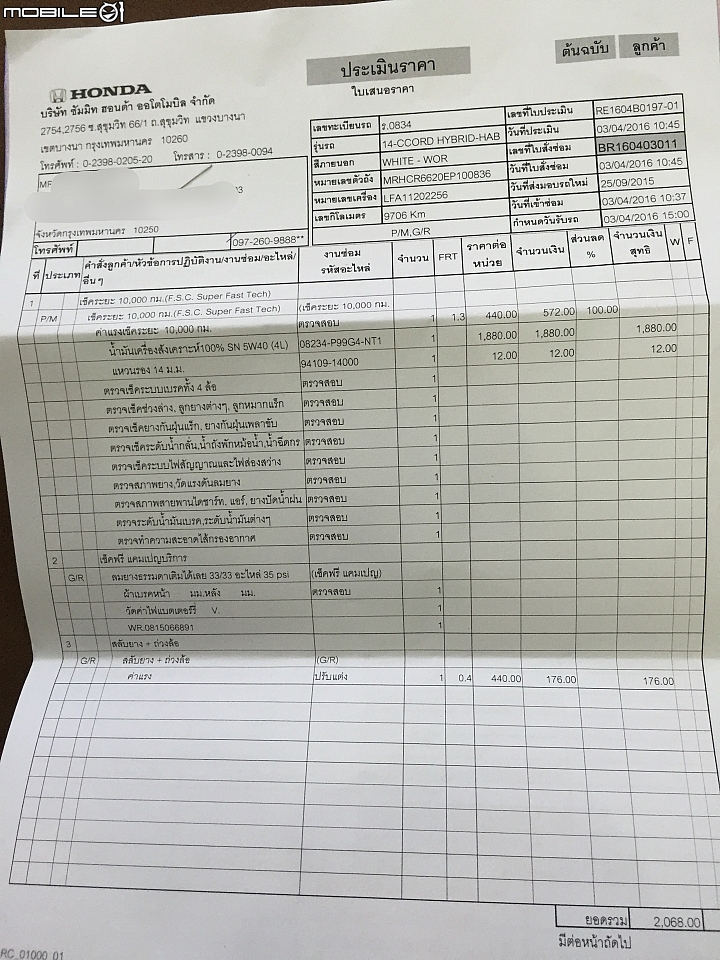 MOBILE01
ต้นฉบับ ลูกค้า
ประเมินราคา
ใบเสนอราคา
HONDA
บริษัท ซัมมิท ฮอนด้า ออโตโมบิล จำกัด
2754,2756 ซ.สุขุมวิท 66/1 ถ.สุขุมวิท แขวงบางนา
เขตบางนา กรุงเทพมหานคร 10260
โทรศัพท์ : 0-2398-0205-20 โทรสาร : 0-2398-0094
จังหวัดกรุงเทพมหานคร 10250
โทรศัพท์ 097-260-9888**
เลขทะเบียนรถ ร.0834 เลขที่ใบประเมิน RE1604B0197-01
รุ่นรถ 14-CCORD HYBRID-HAB วันที่ประเมิน 03/04/2016 10:45
สีภายนอก WHITE - WOR เลขที่ใบสั่งซ่อม BR160403011
หมายเลขตัวถัง MRHCR6620EP100836 วันที่ใบสั่งซ่อม 03/04/2016 10:45
หมายเลขเครื่อง LFA11202256 วันที่ส่งมอบรถใหม่ 25/09/2015
เลขกิโลเมตร 9706 Km วันที่เข้าซ่อม 03/04/2016 10:37
P/M,G/R กำหนดวันรับรถ 03/04/2016 15:00
ที่ ประเภท คำสั่งลูกค้า/หัวข้อการปฏิบัติงาน/งานซ่อม/อะไหล่/อื่นๆ งานซ่อม รหัสอะไหล่ จำนวน FRT ราคาต่อหน่วย จำนวนเงิน ส่วนลด % จำนวนเงินสุทธิ W F
1 เช็คระยะ 10,000 กม.(F.S.C. Super Fast Tech)
P/M เช็คระยะ 10,000 กม.(F.S.C. Super Fast Tech) (เช็คระยะ 10,000 กม.
ค่าแรงเช็คระยะ 10,000 กม. ตรวจสอบ 1 1.3 440.00 572.00 100.00
น้ำมันเครื่องสังเคราะห์100% SN 5W40 (4L) 08234-P99G4-NT1 1 1,880.00 1,880.00 1,880.00
แหวนรอง 14 ม.ม. 94109-14000 1 12.00 12.00 12.00
ตรวจเช็คระบบเบรคทั้ง 4 ล้อ ตรวจสอบ 1
ตรวจเช็คช่วงล่าง, ลูกยางต่างๆ, ลูกหมากแร็ก ตรวจสอบ 1
ตรวจเช็คยางกันฝุ่นแร็ก, ยางกันฝุ่นเพลาขับ ตรวจสอบ 1
ตรวจเช็คระดับน้ำกลั่น,น้ำถังพักหม้อน้ำ,น้ำฉีดกร ตรวจสอบ 1
ตรวจเช็คระบบไฟสัญญาณและไฟส่องสว่าง ตรวจสอบ 1
ตรวจสภาพยาง,วัดแรงดันลมยาง ตรวจสอบ 1
ตรวจสภาพสายพานไดชาร์ท, แอร์, ยางปัดน้ำฝน ตรวจสอบ 1
ตรวจระดับน้ำมันเบรค,ระดับน้ำมันต่างๆ ตรวจสอบ 1
ตรวจทำความสะอาดไส้กรองอากาศ ตรวจสอบ 1
2 เช็คฟรี แคมเปญบริการ
G/R ลมยางธรรมดาเติมได้เลย 33/33 อะไหล่ 35 psi (เช็คฟรี แคมเปญ)
ผ้าเบรคหน้า มม.หลัง มม. ตรวจสอบ 1
วัดค่าไฟแบตเตอร์รี่ V. 1
WR.0815066891 1
3 สลับยาง + ถ่วงล้อ
G/R สลับยาง + ถ่วงล้อ (G/R)
ค่าแรง ปรับแต่ง 1 0.4 440.00 176.00 176.00
ยอดรวม 2,068.00
มีต่อหน้าถัดไป
RC_01000_01